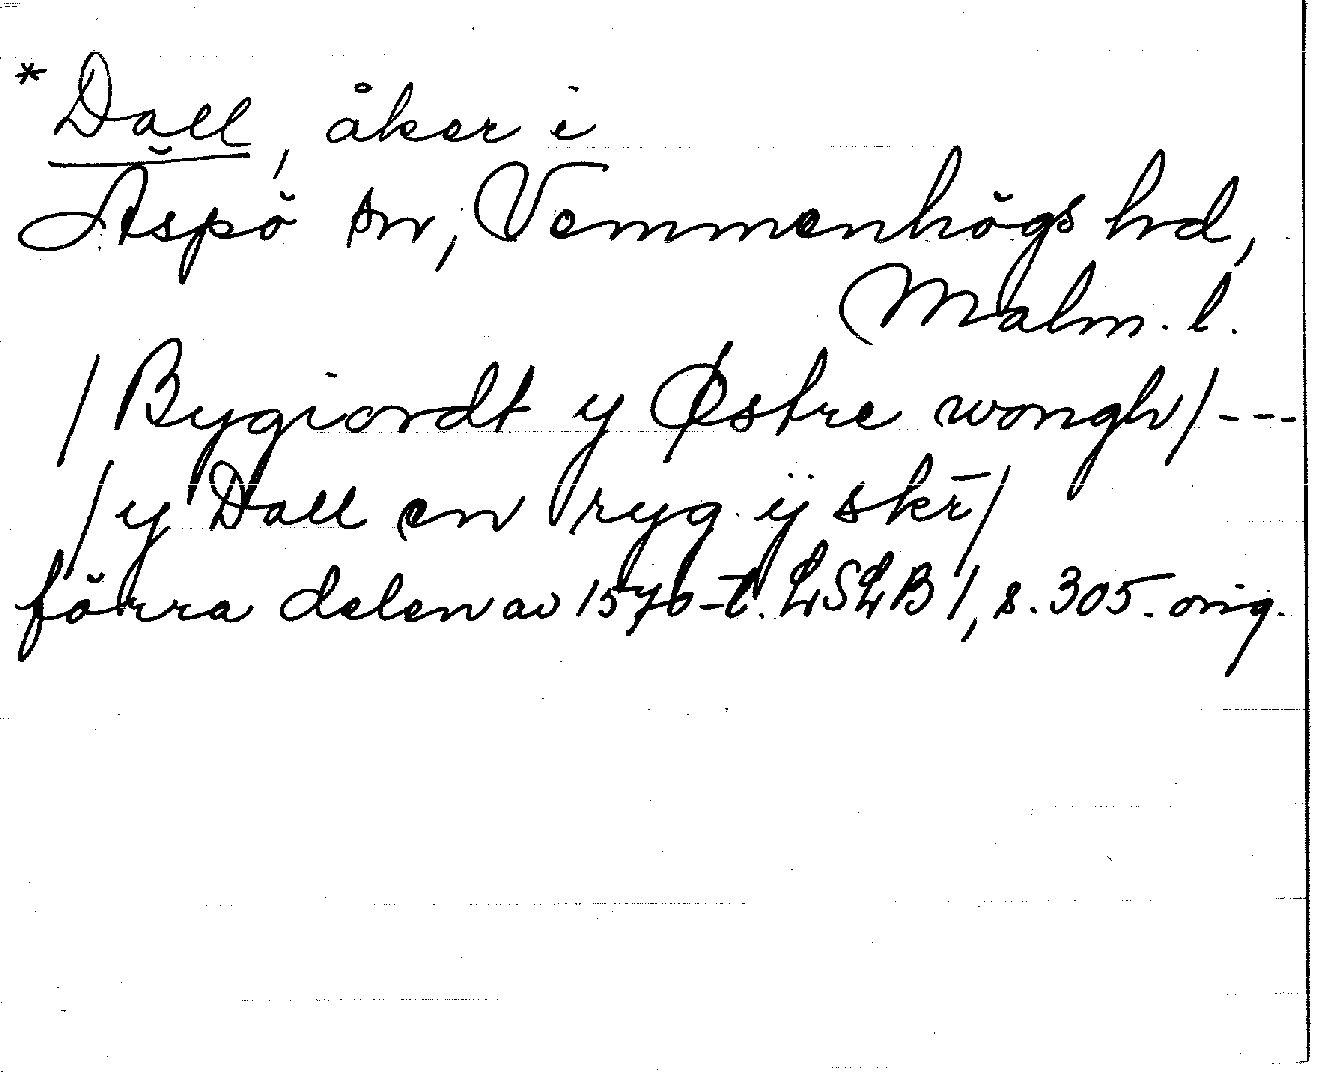 * Dall, åker i
Äspö sn, Vemmenhögs hd,
Malm. l.
/Bygiordt y Østre wongh/---
/y Dall en ryg ÿ skr̄/
förra delen av 1570-t. LSLB 1, s. 305. orig.